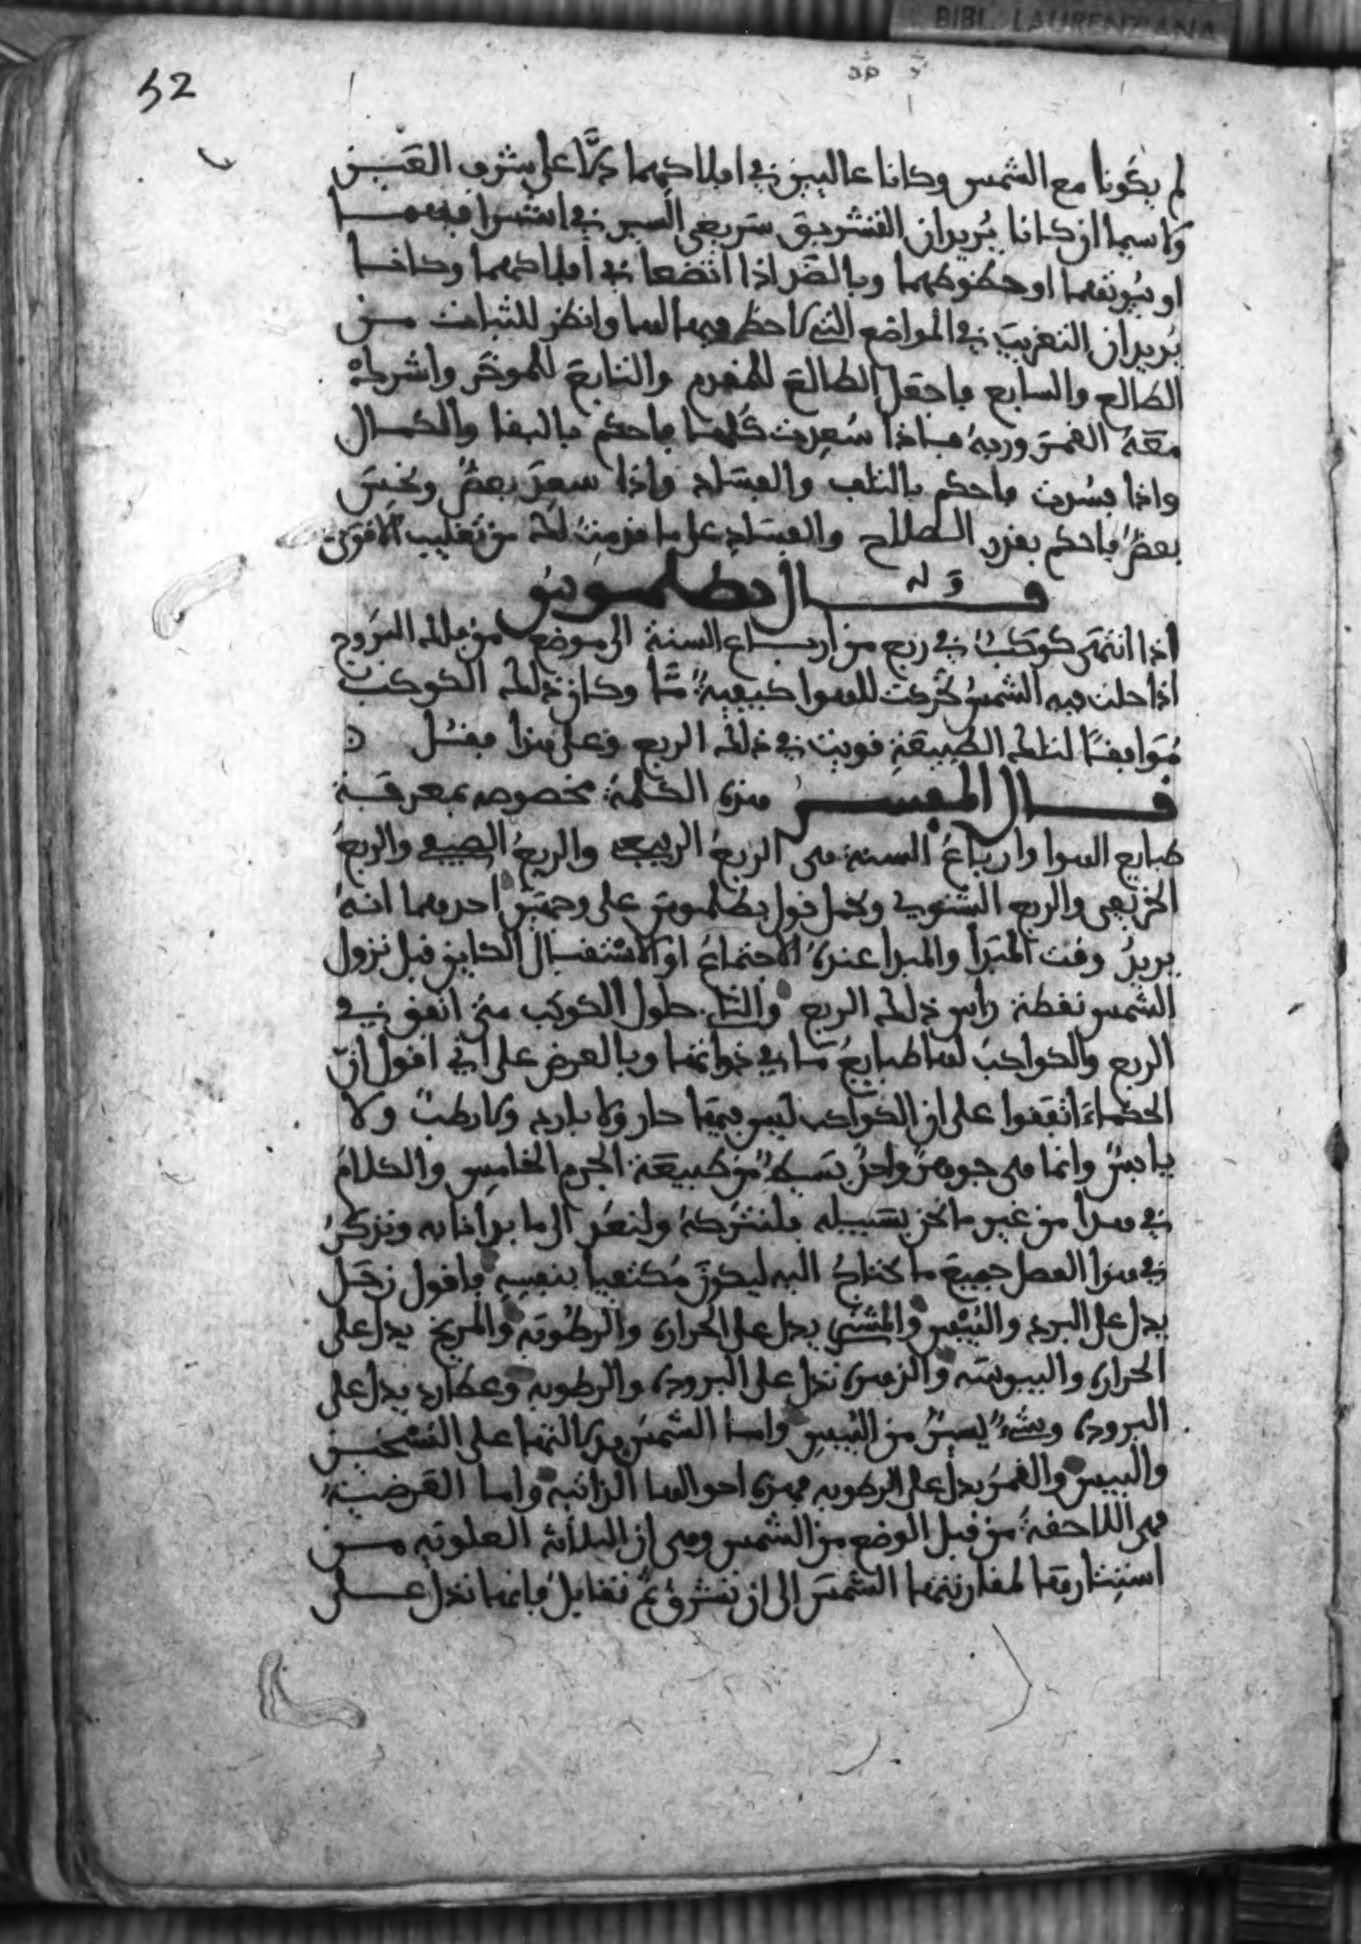 BIBL. LAURENZIANA
52
لم يكونا مع الشمس وكانا عاليين في افلاكهما دلا على شرف القنين
ولاسيما ان كانا يريدان التشريق سريعي السير في اشرافهما
او بيوتهما او حظوظهما وبالضد اذا اتضعا في افلاكهما وكانا
يريدان التغريب في المواضع التي لا حظ فيها لهما وانظر للثبات من
الطالع والسابع فاجعل الطالع للمقدم والسابع للموخر واشرك
معه القمر وربه فاذا سعدت كلها فاحكم بالبقا والكمال
واذا فسدت فاحكم بالتلف والفساد واذا سعد بعض ونحس
بعض فاحكم بقدر الصلاح والفساد على ما قدمت لك من تغليب الاقوى
قال بطلميوس
اذا انتهى كوكب في ربع من ارباع السنة الى موضع من فلك البروج
اذا حلت فيه الشمس تحركت للهوا طبيعة ما وكان ذلك الكوكب
موافقا لتلك الطبيعة قويت في ذلك الربع وعلى هذا فقس ه
قال المفسر هذه الكلمة مخصوصه بمعرفة
طبايع الهوا وارباع السنة هي الربع الربيعي والربع الصيفي والربع
الخريفي والربع الشتوي ويحمل قول بطلميوس على وجهين احدهما انه
يريد وقت المبدا والمبدا عنده الاجتماع او الاستقبال الكاين قبل نزول
الشمس نقطة راس ذلك الربع والثاني حلول الكوكب متى اتفق في
الربع والكواكب لها طبايع ما في ذواتها وبالعرض على اني اقول ان
الحكماء اتفقوا على ان الكواكب ليس فيها حار ولا بارد ولا رطب ولا
يابس وانما هي جوهر واحد بسيط من طبيعة الجرم الخامس والكلام
في هذا من غير ما نحن بسبيله فلنتركه ولنعد الى ما بدانا به ونذكر
في هذا الفصل جميع ما يحتاج اليه ليكون مكتفيا بنفسه فاقول زحل
يدل على البرد واليبس والمشتري يدل على الحرارة والرطوبة والمريخ يدل على
الحرارة واليبوسة والزهرة تدل على البرودة والرطوبة وعطارد يدل على
البرودة وشيء يسير من اليبس واما الشمس فدلالتها على التسخين
واليبس والقمر يدل على الرطوبه فهذه احوالها الذاتيه واما العرضية
فهي اللاحقة من قبل الوضع من الشمس وهي ان الثلاثة العلوية من
استتارها لمقارنتها الشمس الى ان تشرق ثم تقابل فانها تدل على